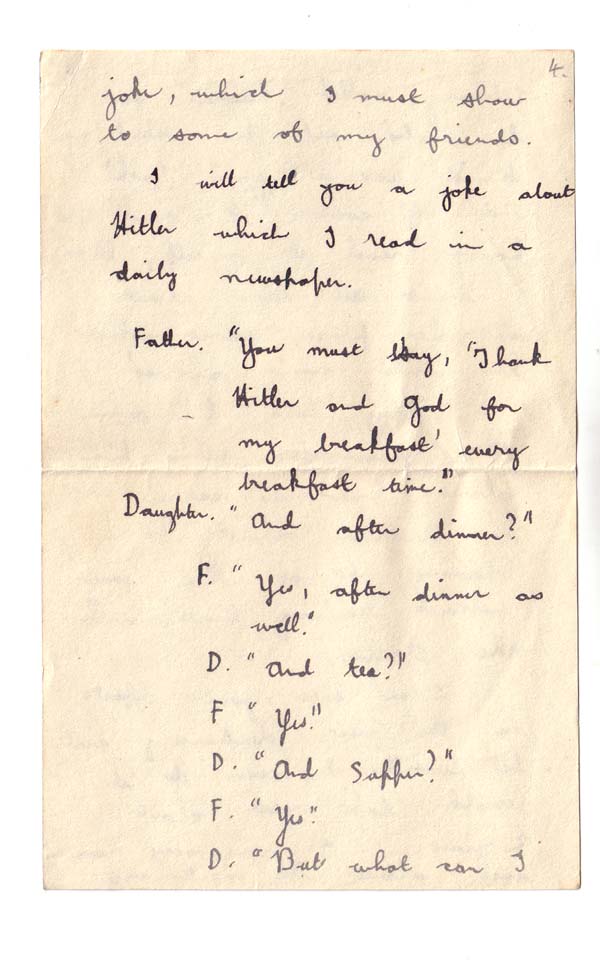 4.
joke, which I must show
to some of my friends.
I will tell you a joke about
Hitler which I read in a
daily newspaper.
Father. "You must say, "Thank
Hitler and God for
my breakfast' every
breakfast time."
Daughter. "And after dinner?"
F. "Yes, after dinner as
well."
D. "And tea?"
F "Yes"
D. "And Supper?"
F. "Yes"
D. "But what can I